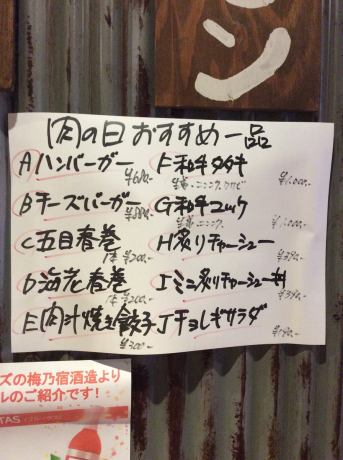 ン
肉の日おすすめ一品
Aハンバーガー
¥680-
Bチーズバーガー
¥880-
C五目春巻
1本 ¥200-
D海老春巻
1本 ¥200-
E肉汁焼き餃子
¥300-
F和牛タタキ
生姜・ニンニク・ワサビ
¥1,000-
G和牛ユッケ
生姜・ニンニク
¥1,000-
H炙りチャーシュー
¥390-
Iミニ炙りチャーシュー丼
¥390-
Jチョレギサラダ
ズの梅乃宿酒造より
ルのご紹介です!